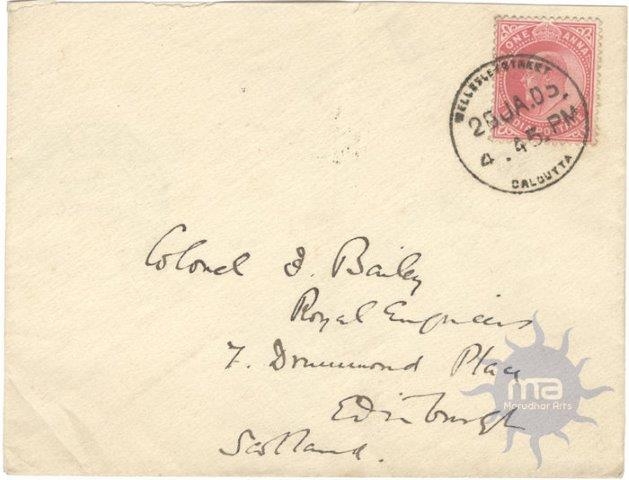 ONE ANNA
INDIA POSTAGE
WELLESLEY STREET
29 JA.05.
4.45.PM
CALCUTTA
Colonel F. Bailey
Royal Engineers
7. Drummond Place
Edinburgh
Scotland.
ma
Marudhar Arts